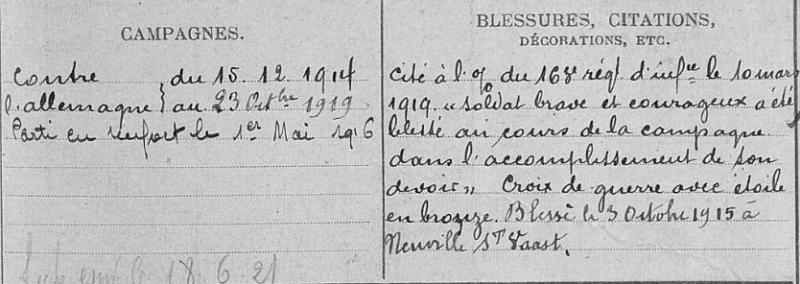 CAMPAGNES.
Contre } du 15.12.1914
l'allemagne } au 23 Octbre 1919
Parti en renfort le 1er Mai 1916
18.6.21
BLESSURES, CITATIONS,
DÉCORATIONS, ETC.
Cité à l'o/ du 168e régt d'infrie le 10 mars
1919. "Soldat brave et courageux a été
blessé au cours de la campagne
dans l'accomplissement de son
devoir" Croix de guerre avec étoile
en bronze. Blessé le 3 Octobre 1915 à
Neuville St Vaast.